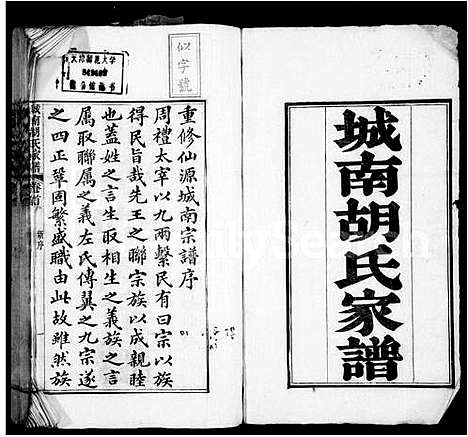 城南胡氏家譜
似字號
重修仙源城南宗譜序
周禮太宰以九兩繫民有曰宗以族
得民旨哉先王之聯宗族以成親睦
也蓋姓之言生取相生之義族之言
屬取聯屬之義左氏傳翼之九宗遂
之四正鞏固繁盛職由此故雖然族
城南胡氏家譜 卷首
新序
一